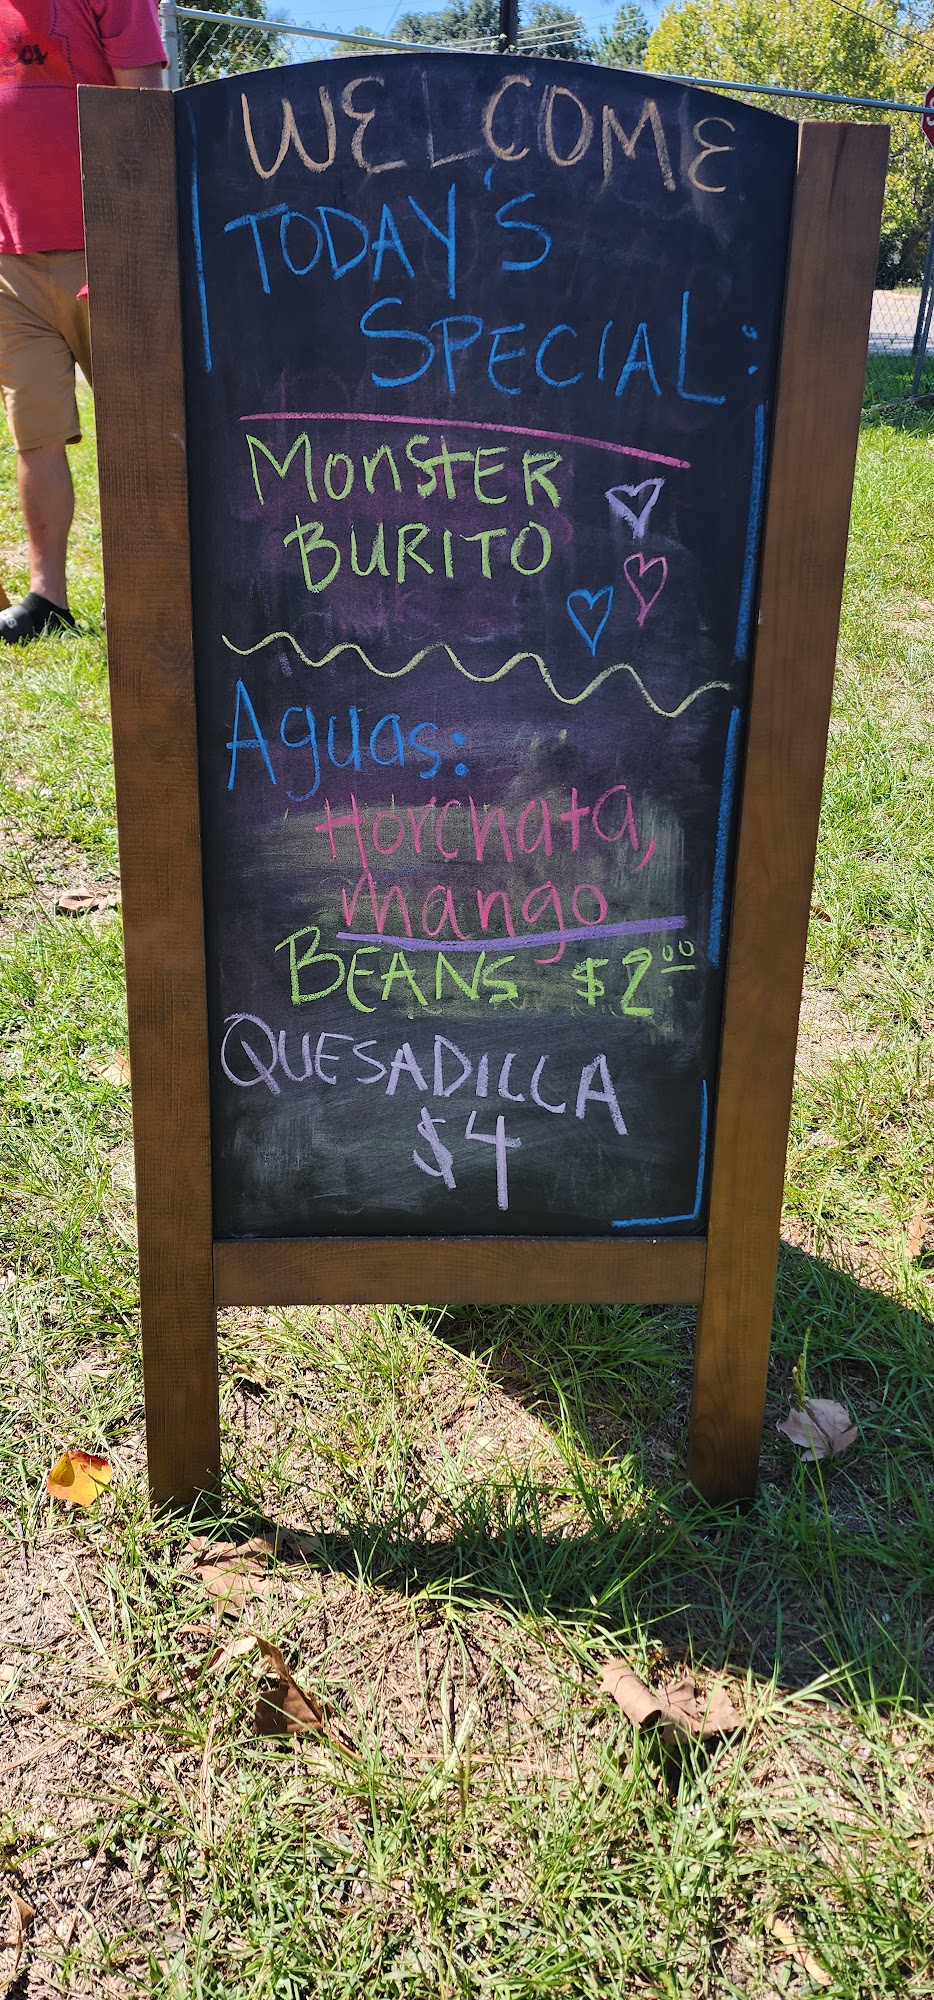 WELCOME
TODAY'S
SPECIAL:
MonSTER
BURITO
Aguas:
Horchata,
mango
BEANS $2.00
QUESADILLA
$4